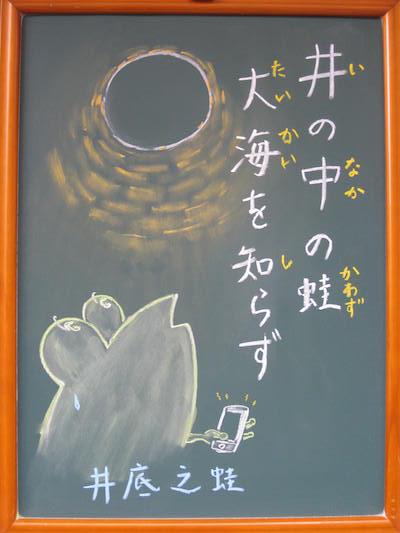 井の中の蛙
い なか かわず
大海を知らず
たい かい し
井底之蛙